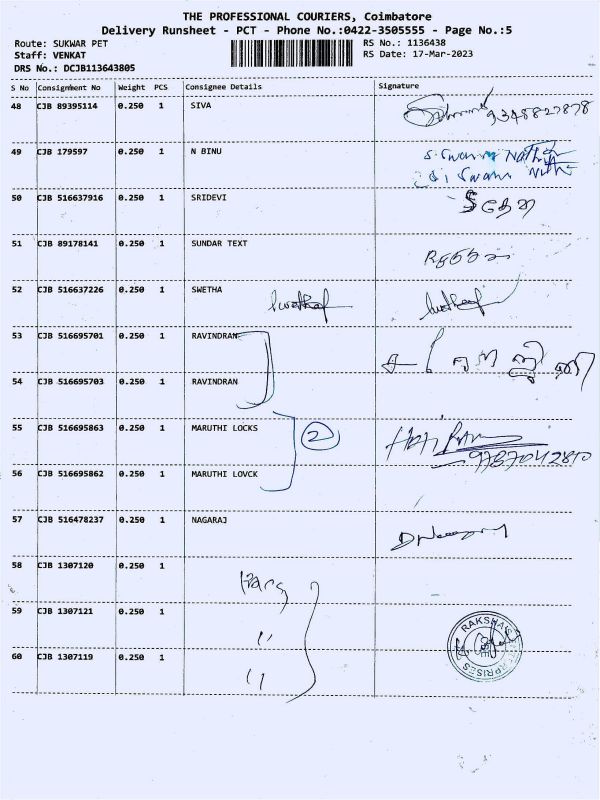 THE PROFESSIONAL COURIERS, Coimbatore
Delivery Runsheet - PCT - Phone No.:0422-3505555 - Page No.:5
Route: SUKWAR PET
RS No.: 1136438
Staff: VENKAT
RS Date: 17-Mar-2023
DRS No.: DCJB113643805
S No Consignment No Weight PCS Consignee Details Signature
48 CJB 89395114 0.250 1 SIVA 9348827878
49 CJB 179597 0.250 1 N BINU S. Swamy Nathan
50 CJB 516637916 0.250 1 SRIDEVI
51 CJB 89178141 0.250 1 SUNDAR TEXT
52 CJB 516637226 0.250 1 SWETHA
53 CJB 516695701 0.250 1 RAVINDRAN
54 CJB 516695703 0.250 1 RAVINDRAN
55 CJB 516695863 0.250 1 MARUTHI LOCKS 2 9787042810
56 CJB 516695862 0.250 1 MARUTHI LOVCK
57 CJB 516478237 0.250 1 NAGARAJ
58 CJB 1307120 0.250 1
59 CJB 1307121 0.250 1 "
RAKSHA ENTERPRISES
60 CJB 1307119 0.250 1 "